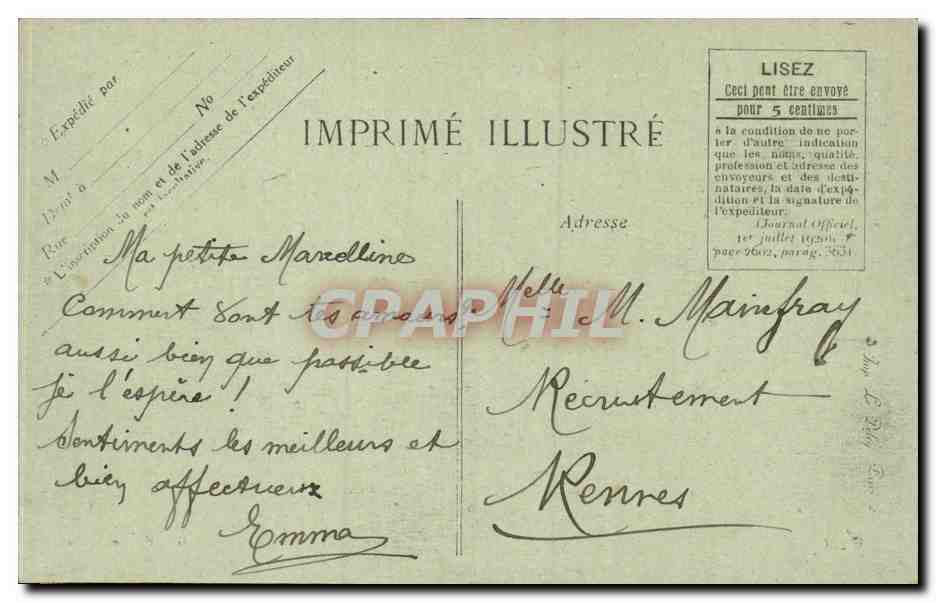 Expédié par
M
Demt à
Rue
No
L'inscription du nom et de l'adresse de l'expéditeur
est facultative.
IMPRIMÉ ILLUSTRÉ
LISEZ
Ceci peut être envoyé
pour 5 centimes
à la condition de ne por-
ter d'autre indication
que les noms, qualité,
profession et adresse des
envoyeurs et des desti-
nataires, la date d'expé-
dition et la signature de
l'expediteur.
(Journal Officiel,
1er juillet 1920,
page 9602, parag. 3651.
Adresse
Ma petite Marcelline
Comment vont tes amours ?
aussi bien que possible
je l'espère !
Sentiments les meilleurs et
bien affectueux
Emma
Melle M. Mainfray
Recrutement
Rennes
CPAPHIL